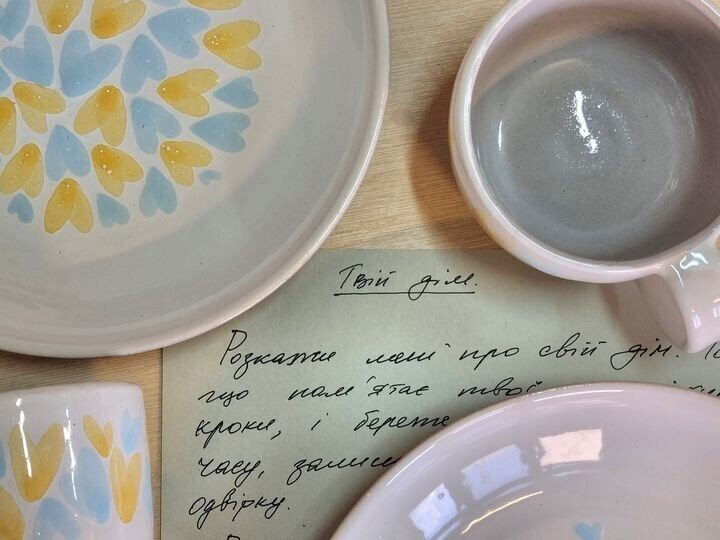 Твій дім.
Розкажи мені про свій дім.
що пам'ятає твої
кроки, і береже
часу,
одвірку.